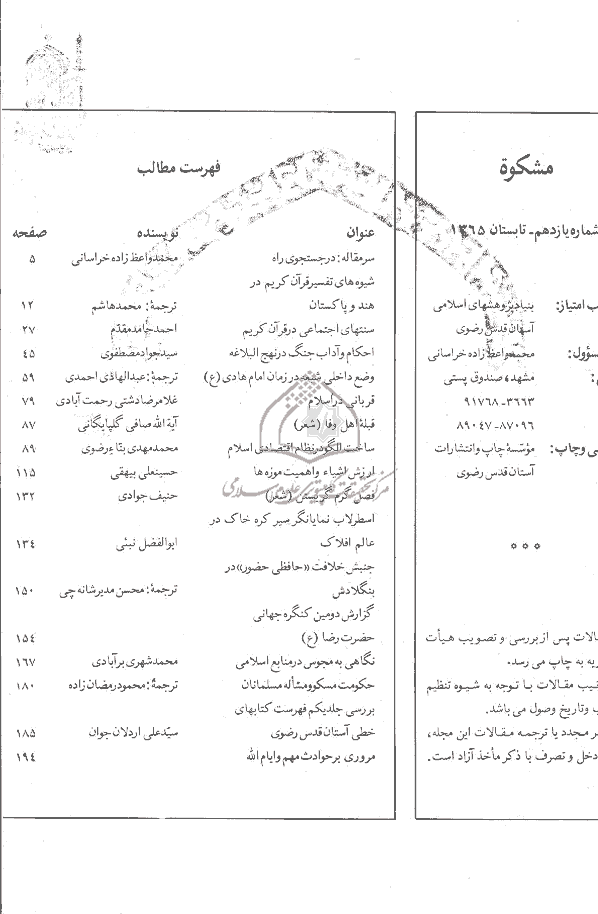 مشکوة
شماره یازدهم ـ تابستان ۱۳۶۵
ب امتیاز: بنیاد پژوهشهای اسلامی
آستان قدس رضوی
سؤول: محمد واعظ زاده خراسانی
مشهد، صندوق پستی
۹۱۷۶۸-۳۶۶۳
۸۹۰۴۷-۸۷۰۹۶
ی وچاپ: مؤسّسهٔ چاپ و انتشارات
آستان قدس رضوی
* * *
الات پس از بررسی و تصویب هیأت
ریه به چاپ می رسد.
تیب مقالات با توجه به شیوه تنظیم
ب وتاریخ وصول می باشد.
ر مجدد یا ترجمه مقالات این مجله،
دخل و تصرف با ذکر مأخذ آزاد است.
فهرست مطالب
عنوان نویسنده صفحه
سرمقاله: درجستجوی راه محمدواعظ زاده خراسانی ۵
شیوه های تفسیرقرآن کریم در
هند و پاکستان ترجمهٔ: محمدهاشم ۱۲
سنتهای اجتماعی درقرآن کریم احمدحامدمقدّم ۲۷
احکام وآداب جنگ درنهج البلاغه سیدجوادمصطفوی ۴۵
وضع داخلی شیعه در زمان امام هادی (ع) ترجمهٔ: عبدالهادی احمدی ۵۹
قربانی دراسلام غلامرضادشتی رحمت آبادی ۷۹
قبلهٔ اهل وفا (شعر) آیة الله صافی گلپایگانی ۸۷
ساخت الگودرنظام اقتصادی اسلام محمدمهدی بناء رضوی ۸۹
ارزش اشیاء واهمیت موزه ها حسینعلی بیهقی ۱۱۵
فصل گرم گریستن (شعر) حنیف جوادی ۱۳۲
اسطرلاب نمایانگر سیر کره خاک در
عالم افلاک ابوالفضل نبئی ۱۳۴
جنبش خلافت «حافظی حضور» در
بنگلادش ترجمهٔ: محسن مدیرشانه چی ۱۵۰
گزارش دومین کنگره جهانی
حضرت رضا (ع) ۱۵۴
نگاهی به مجوس درمنابع اسلامی محمدشهری برآبادی ۱۶۷
حکومت مسکوومسأله مسلمانان ترجمهٔ: محمودرمضان زاده ۱۸۰
بررسی جلدیکم فهرست کتابهای
خطی آستان قدس رضوی سیّدعلی اردلان جوان ۱۸۵
مروری برحوادث مهم وایام الله ۱۹۴